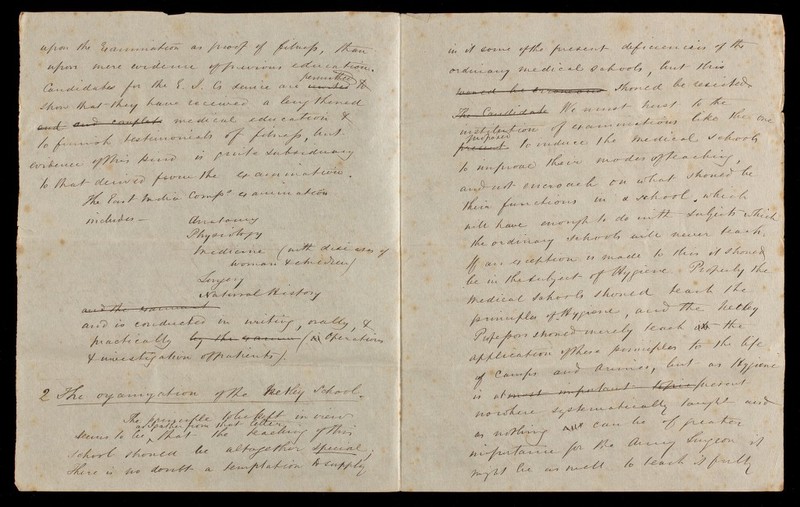 upon the Examination as proof of fitness, than
upon mere evidence of previous education.
Candidates for the E. I. Co desire are permitted to
show that they have received a
medical education &
to furnish testimonials of fitness, but
evidence of this kind is quite subordinate
to that derived from the examination.
The East India Compy examination
includes — Anatomy
Physiology
Medicine (with diseases of
women & children)
Surgery
Natural History
and the
and is conducted in writing, orally, &
practically by the (in operations
& investigation of patients).
2 The organization of the Netley School.
The principle to be kept in view
apparent from that letter
seems to be, that the teaching of this
school should be altogether special;
there is no doubt a temptation to supply
in it some of the present deficiencies of the
ordinary medical schools, but this
should be resisted.
The Candidate We must trust to the
institution of examinations like the one
proposed
present to induce the medical schools
to improve their modes of teaching,
and not encroach on what should be
their functions in a school, which
will have enough to do with subjects which
the ordinary schools will never teach.
If an exception is made to this it should
be in the subject of Hygiene. Properly the
medical schools should teach the
principles of Hygiene, and the Netley
Professors should merely teach the
application of these principles to the life
of camps and armies, but as Hygiene
is at most important topic present
nowhere systematically taught and
as nothing can be of greater
importance for the Army Surgeon it
might be as well to teach it fully